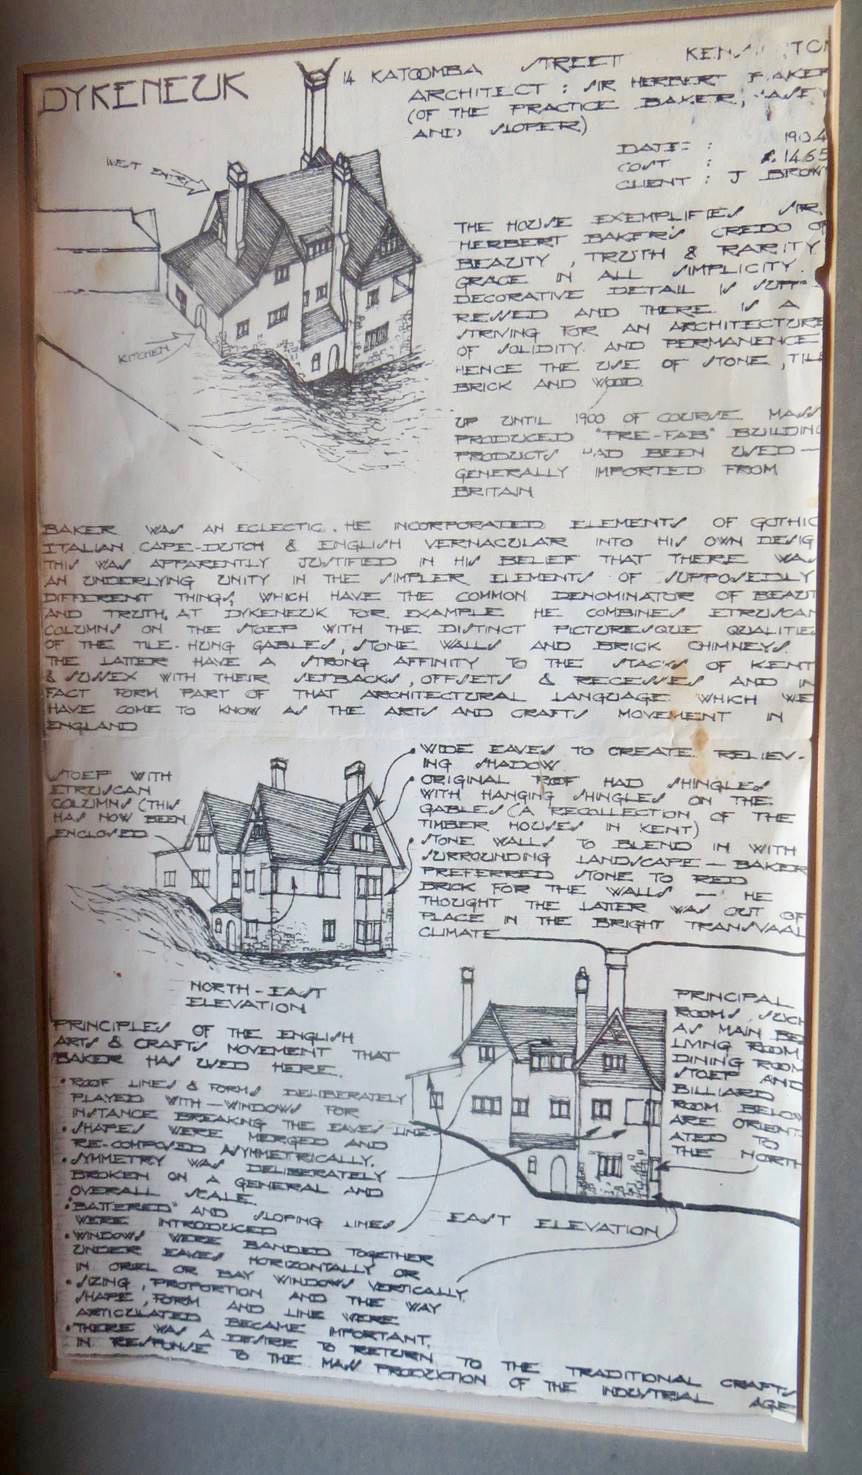 DYKENEUK
14 KATOOMBA STREET KENSINGTON
ARCHITECT : SIR HERBERT BAKER
(OF THE PRACTICE BAKER, MASEY
AND SLOPER)
DATE : 1904
COST : £1465
CLIENT : J BROWN
WEST ENTRY
KITCHEN
THE HOUSE EXEMPLIFIES SIR
HERBERT BAKER'S CREDO OF
BEAUTY, TRUTH & RARITY
GRACE IN ALL SIMPLICITY.
DECORATIVE DETAIL IS SUPP-
RESSED AND THERE IS A
STRIVING FOR AN ARCHITECTURE
OF SOLIDITY AND PERMANENCE
HENCE THE USE OF STONE, TILE
BRICK AND WOOD.
UP UNTIL 1900 OF COURSE MASS
PRODUCED "PRE-FAB" BUILDING
PRODUCTS HAD BEEN USED —
GENERALLY IMPORTED FROM
BRITAIN
BAKER WAS AN ECLECTIC. HE INCORPORATED ELEMENTS OF GOTHIC
ITALIAN CAPE-DUTCH & ENGLISH VERNACULAR INTO HIS OWN DESIG
THIS WAS APPARENTLY JUSTIFIED IN HIS BELIEF THAT THERE WAS
AN UNDERLYING UNITY IN THE SIMPLER ELEMENTS OF SUPPOSEDLY
DIFFERENT THINGS, WHICH HAVE THE COMMON DENOMINATOR OF BEAUT
AND TRUTH. AT DYKENEUK FOR EXAMPLE HE COMBINES ETRUSCAN
COLUMNS ON THE STOEP WITH THE DISTINCT PICTURESQUE QUALITIE
OF THE TILE-HUNG GABLES, STONE WALLS AND BRICK CHIMNEYS.
THE LATTER HAVE A STRONG AFFINITY TO THE STACKS OF KENT
& SUSSEX WITH THEIR SETBACKS, OFFSETS & RECESSES AND IN
FACT FORM PART OF THAT ARCHITECTURAL LANGUAGE WHICH WE
HAVE COME TO KNOW AS THE ARTS AND CRAFTS MOVEMENT IN
ENGLAND
STOEP WITH
ETRUSCAN
COLUMNS (THIS
HAS NOW BEEN
ENCLOSED
WIDE EAVES TO CREATE RELIEV-
ING SHADOW
ORIGINAL ROOF HAD SHINGLES
WITH HANGING SHINGLES ON THE
GABLES (A RECOLLECTION OF THE
TIMBER HOUSES IN KENT)
STONE WALLS TO BLEND IN WITH
SURROUNDING LANDSCAPE — BAKER
PREFERRED STONE TO RED
BRICK FOR THE WALLS — HE
THOUGHT THE LATTER WAS OUT OF
PLACE IN THE BRIGHT TRANSVAAL
CLIMATE
NORTH-EAST
ELEVATION
PRINCIPAL
ROOMS, SUCH
AS MAIN BE
LIVING ROOM,
DINING ROOM
STOEP AND
BILLIARD
ROOM BELOW
ARE ORIENT
ATED TO
THE NORTH
EAST ELEVATION
PRINCIPLES OF THE ENGLISH
ARTS & CRAFTS MOVEMENT THAT
BAKER HAS USED HERE.
• ROOF LINES & FORMS DELIBERATELY
PLAYED WITH — WINDOWS FOR
INSTANCE BREAKING THE EAVES LINE
• SHAPES WERE MERGED AND
RE-COMPOSED ASYMMETRICALLY.
• SYMMETRY WAS DELIBERATELY
BROKEN ON A GENERAL AND
OVERALL SCALE.
• "BATTERED" AND SLOPING LINES
WERE INTRODUCED
• WINDOWS WERE BANDED TOGETHER
UNDER EAVES HORIZONTALLY OR
IN ORIEL OR BAY WINDOWS VERTICALLY.
• SIZING, PROPORTION AND THE WAY
SHAPE, FORM AND LINE WERE
ARTICULATED BECAME IMPORTANT.
• THERE WAS A DESIRE TO RETURN TO THE TRADITIONAL CRAFTS
IN RESPONSE TO THE MASS PRODUCTION OF THE INDUSTRIAL AGE